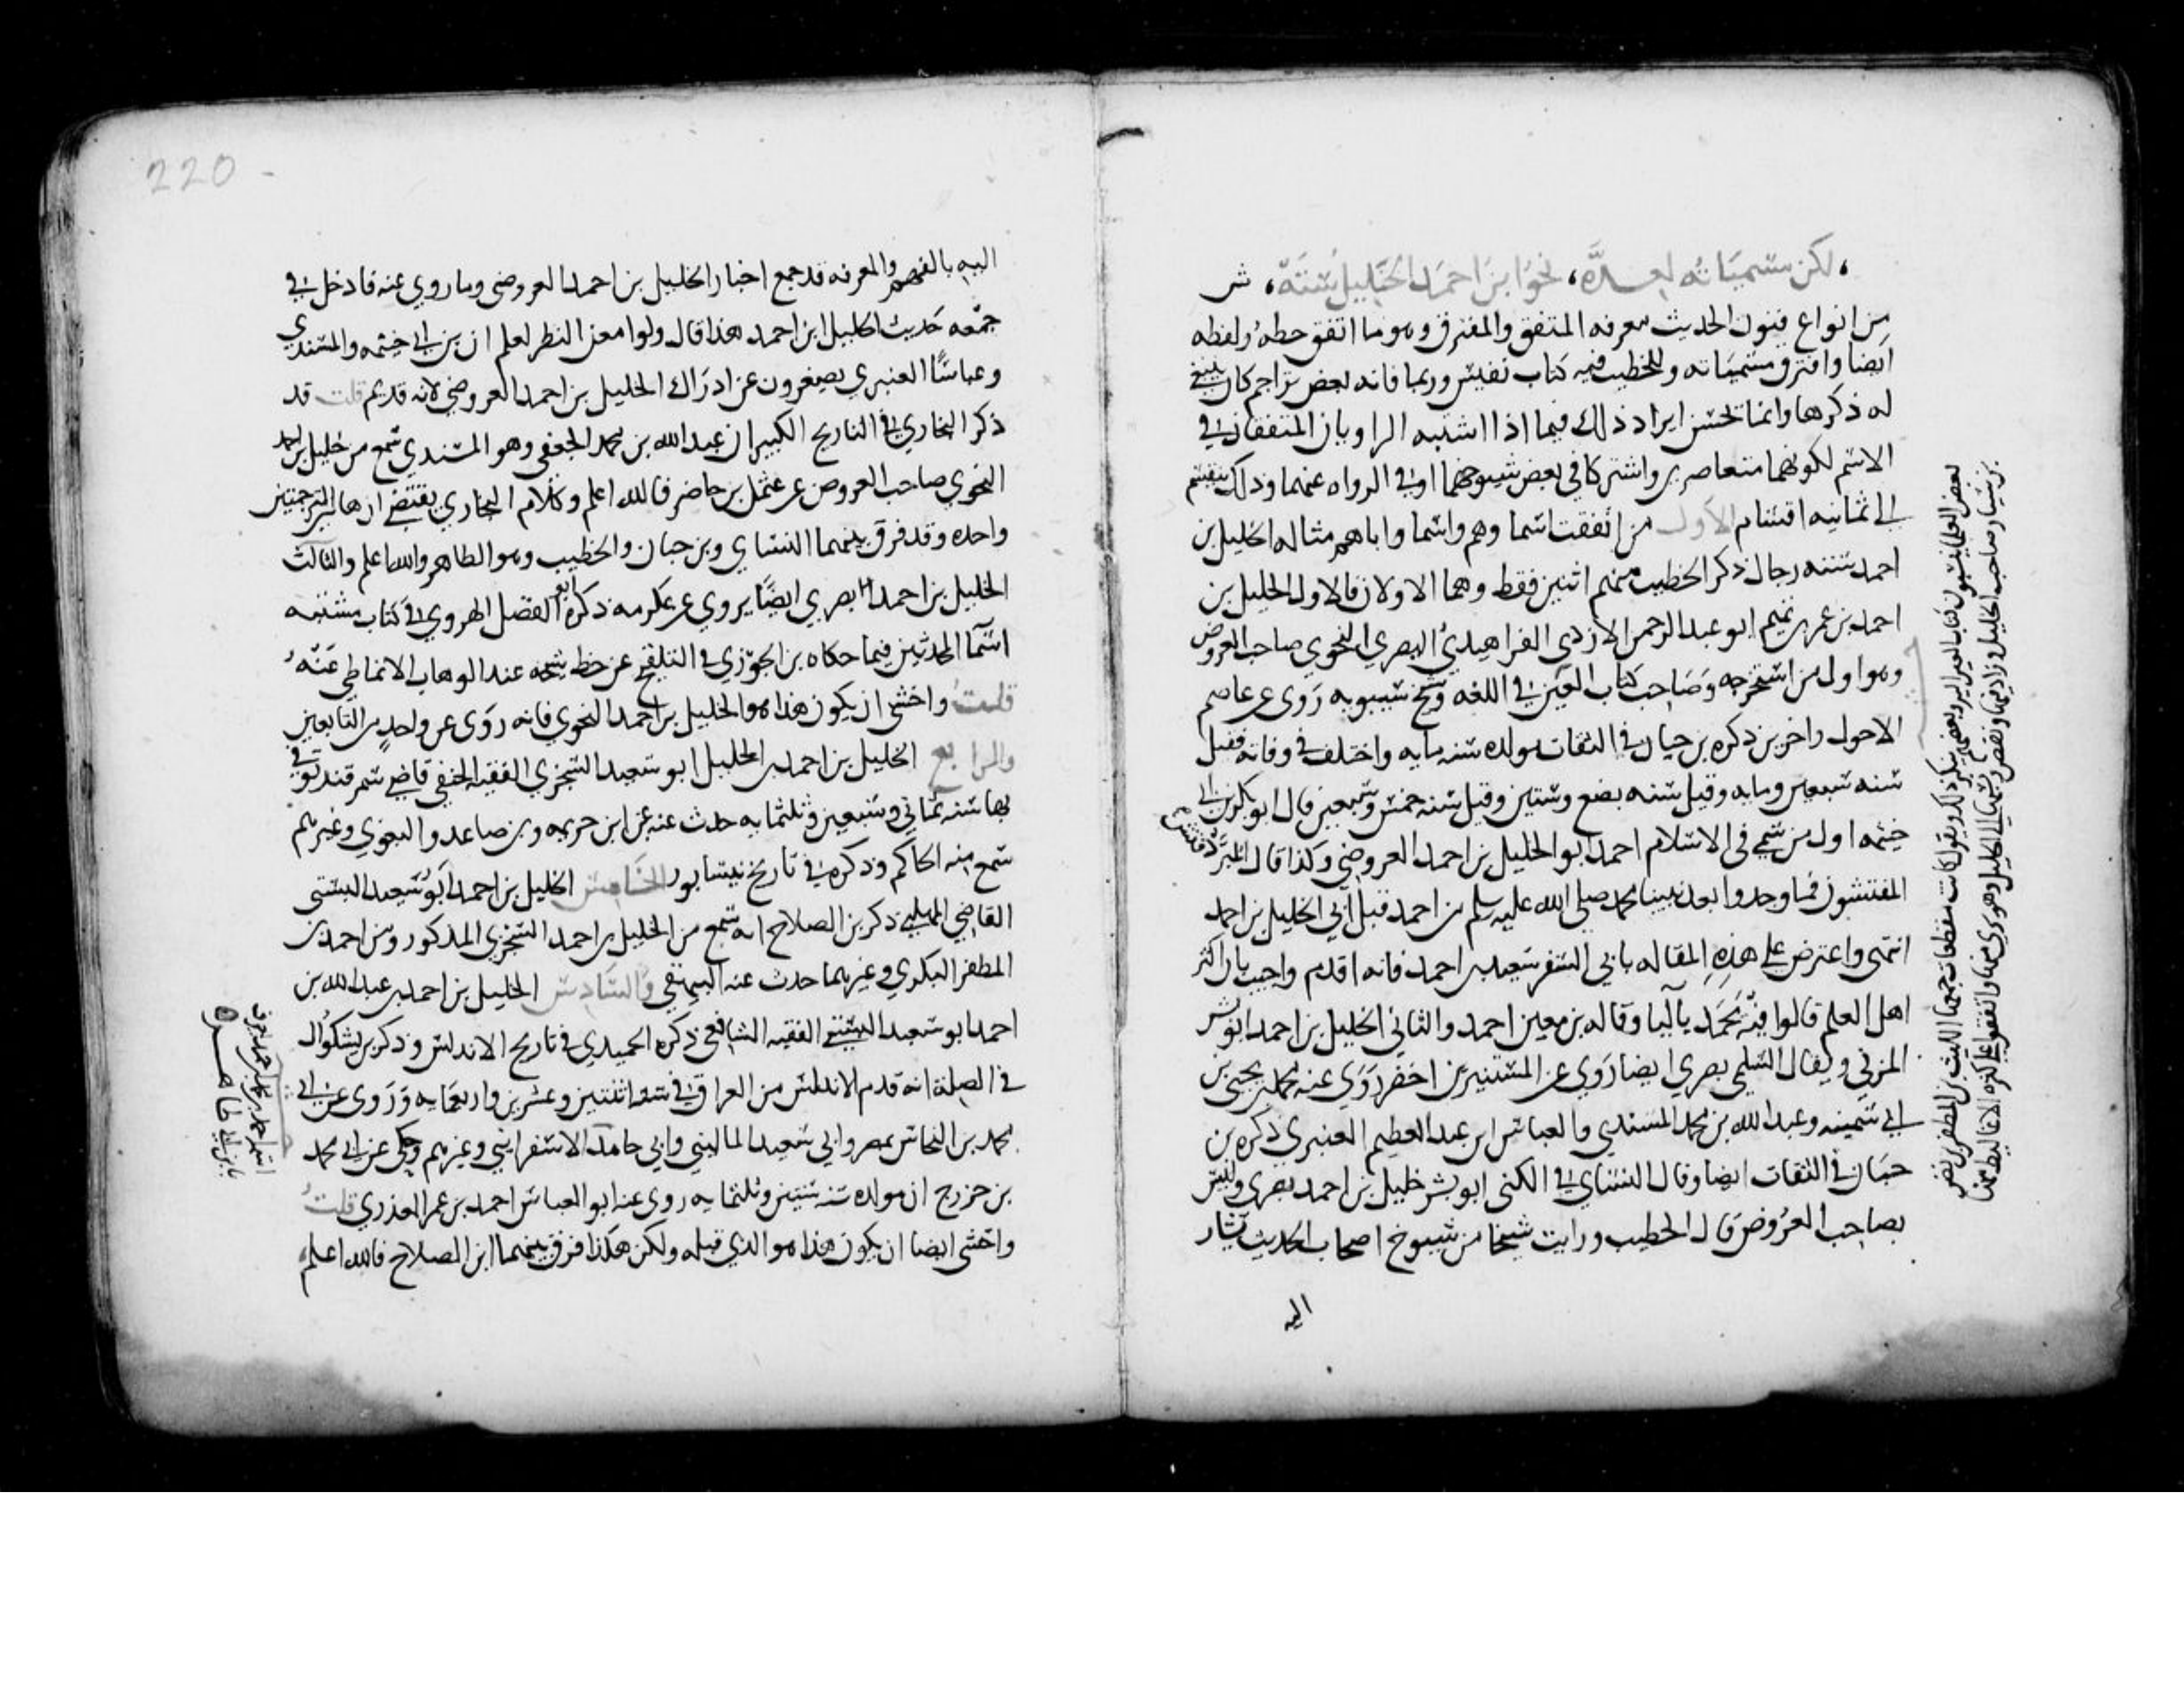 لكن مسمياته لعدة، نحو ابن احمد الخليل ستة، ش
من انواع فنون الحديث معرفه المتفق والمفترق وهو ما اتفق خطه ولفظه
ايضا وافترق مسمياته وللخطيب فيه كتاب نفيس وربما فاته بعض تراجم كان ينبغي
له ذكرها وانما يحسن ايراد ذلك فيما اذا اشتبه الراويان المتفقان في
الاسم لكونهما متعاصرين واشتركا في بعض شيوخهما او في الرواه عنهما وذلك ينقسم
الى ثمانيه اقسام الاول من اتفقت اسماوهم واسما اباهم مثاله الخليل بن
احمد سته رجال ذكر الخطيب منهم اثنين فقط وهما الاولان فالاول الخليل بن
احمد بن عمرو بن تميم ابو عبد الرحمن الازدي الفراهيدي البصري النحوي صاحب العروض
وهو اول من استخرجه وصاحب كتاب العين في اللغه وشيخ سيبويه روى عن عاصم
الاحول واخرين ذكره بن حبان في الثقات مولده سنه مايه واختلف في وفاته فقيل
سنه سبعين ومايه وقيل سنه بضع وستين وقيل سنه خمس وسبعين قال ابو بكر بن ابي
خيثمه اول من سمي في الاسلام احمد ابو الخليل بن احمد العروضي وكذا قال المبرد فتش
المفتشون فما وجدوا بعد نبينا محمد صلى الله عليه وسلم من احمد قبل ابي الخليل بن احمد
انتهى واعترض على هذه المقاله بابي السفر سعيد بن احمد فانه اقدم واجيب بان اكثر
اهل العلم قالوا فيه يحمد باليا وقاله بن معين احمد والثاني الخليل بن احمد ابو بشر
المزني ويقال السلمي بصري ايضا روى عن المستنير بن اخضر روى عنه محمد بن يحيى بن
ابي سمينه وعبد الله بن محمد المسندي والعباس ابن عبد العظيم العنبري ذكره بن
حبان في الثقات ايضا وقال النساي في الكنى ابو بشر خليل بن احمد بصري وليس
بصاحب العروض قال الخطيب ورايت شيخا من شيوخ اصحاب الحديث يشار
اليه
بعض العلما ينسبون كتاب العين اليه وبعضهم ينكر ذلك ويقول كانت مقطعات جمعها الليث بن المظفر بن نصر
بن سيار صاحب الخليل وزاد فيها ونقص ونسبها الى الخليل وهو بري منها واتفقوا على كثرة الاغاليط فيها
اليه بالفهم والمعرفه قد جمع اخبار الخليل بن احمد العروضي وما روي عنه فادخل في
جمعه حديث الخليل ابن احمد هذا قال ولو امعن النظر لعلم ان بن ابي خيثمه والمسندي
وعباسًا العنبري يصغرون عن ادراك الخليل بن احمد العروضي لانه قديم قلت قد
ذكر البخاري في التاريخ الكبير ان عبد الله بن محمد الجعفي وهو المسندي سمع من خليل بن احمد
النحوي صاحب العروض عن عثمن بن حاضر فالله اعلم وكلام البخاري يقتضي ان هاتين الترجمتين
واحده وقد فرق بينهما النساي وبن حبان والخطيب وهو الظاهر والله اعلم والثالث
الخليل بن احمد بصري ايضًا يروي عن عكرمه ذكره ابو الفضل الهروي في كتاب مشتبه
اسما المحدثين فيما حكاه بن الجوزي في التلقيح عن خط شيخه عبد الوهاب الانماطي عنه
قلت واخشى ان يكون هذا هو الخليل بن احمد النحوي فانه روى عن واحدٍ من التابعين
والرابع الخليل بن احمد بن الخليل ابو سعيد السجزي الفقيه الحنفي قاضي سمرقند توفي
بها سنه ثماني وسبعين وثلثمايه حدث عنه عن ابن خزيمه وبن صاعد والبغوي وغيرهم
سمع منه الحاكم وذكره في تاريخ نيسابور الخامس الخليل بن احمد ابو سعيد البستي
القاضي المهلبي ذكر بن الصلاح انه سمع من الخليل بن احمد السجزي المذكور ومن احمد بن
المظفر البكري وغيرهما حدث عنه البيهقي والسادس الخليل بن احمد بن عبد الله بن
احمد ابو سعيد البستي الفقيه الشافعي ذكره الحميدي في تاريخ الاندلس وذكر بن بشكوال
في الصلة انه قدم الاندلس من العراق في سنة اثنتين وعشرين واربعمايه وروى عن ابي
محمد بن النحاس بمصر وابي سعيد الماليني وابي حامد الاسفرايني وغيرهم وحكى عن ابي محمد
بن خزرج ان مولده سنه ستين وثلثمايه روى عنه ابو العباس احمد بن عمر العذري قلت
واخشى ايضا ان يكون هذا هو الذي قبله ولكن هكذا فرق بينهما ابن الصلاح فالله اعلم
220